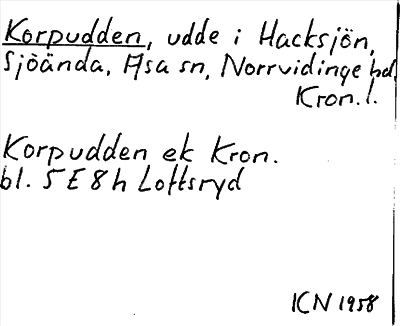 Korpudden, udde i Hacksjön,
Sjöända, Asa sn, Norrvidinge hd.
Kron. l.
Korpudden ek Kron.
bl. 5 E 8 h Loftsryd
ICN 1958